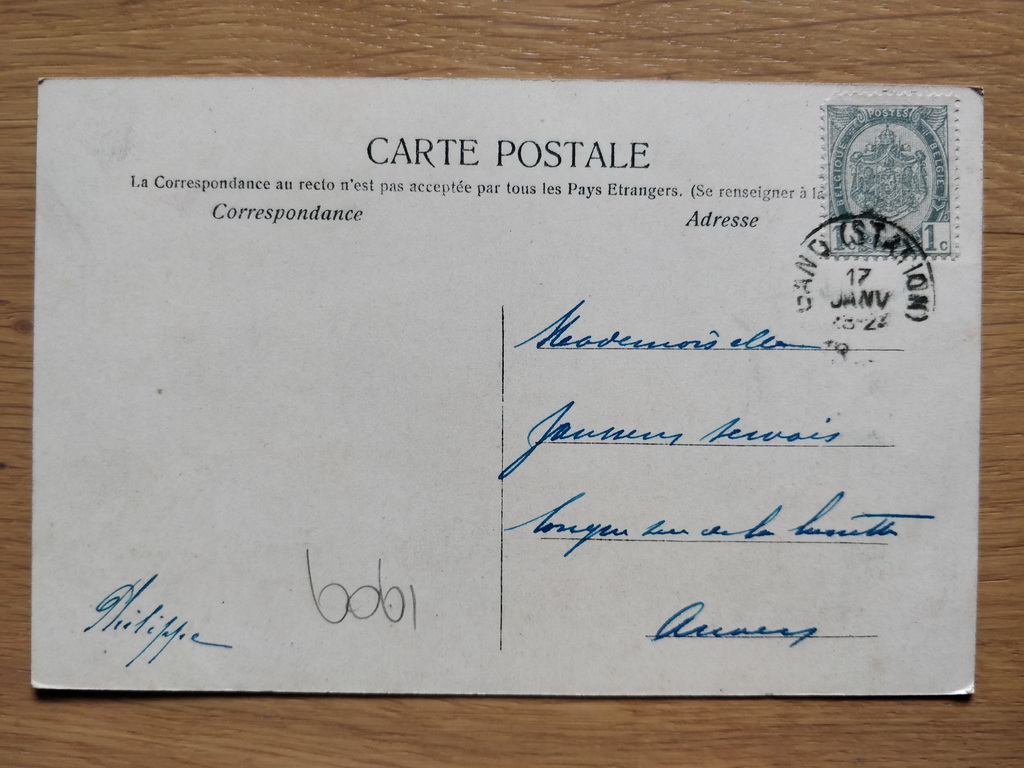 CARTE POSTALE
La Correspondance au recto n'est pas acceptée par tous les Pays Etrangers. (Se renseigner à la
Correspondance
Adresse
POSTES
BELGIQUE BELGIË
1c 1c
GAND (STATION)
17
JANV
Mademoiselle
Janssens Servais
longue rue de la
Anvers
Philippe
1909